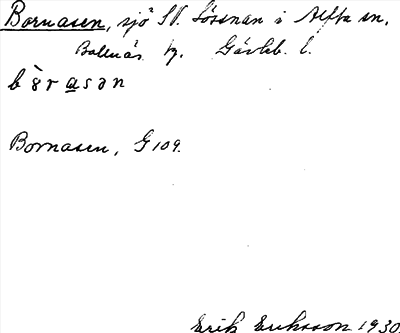 Bornasen, sjö SV. Lössnan i Alfta sn,
Bollnäs tg. Gävleb. l.
bòrasan
Bornasen, G 109.
Erik Eriksson 1930.